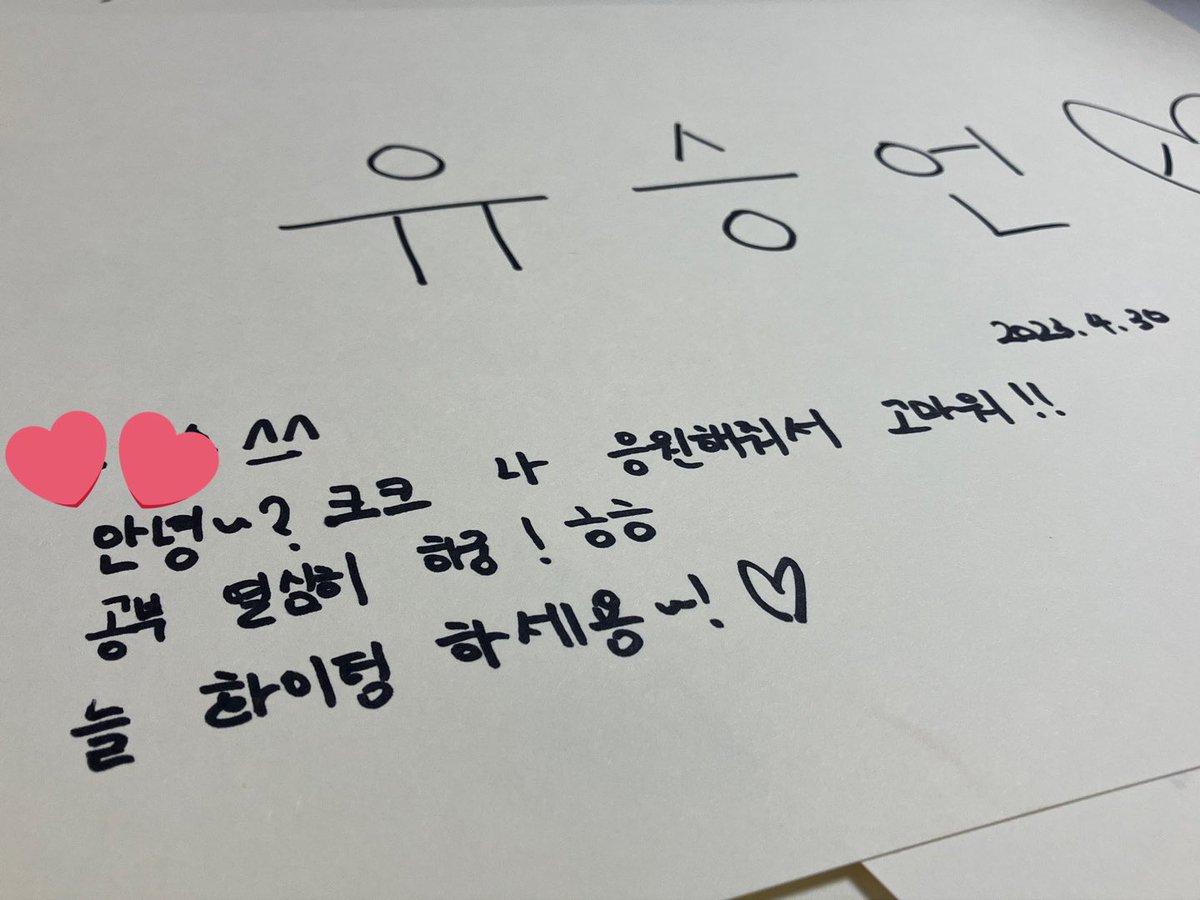 유승언♡
2023.4.30
쓰
안녕~? 크크 나 응원해줘서 고마워!!
공부 열심히 하궁! 흐흐
늘 화이팅 하세용~! ♡